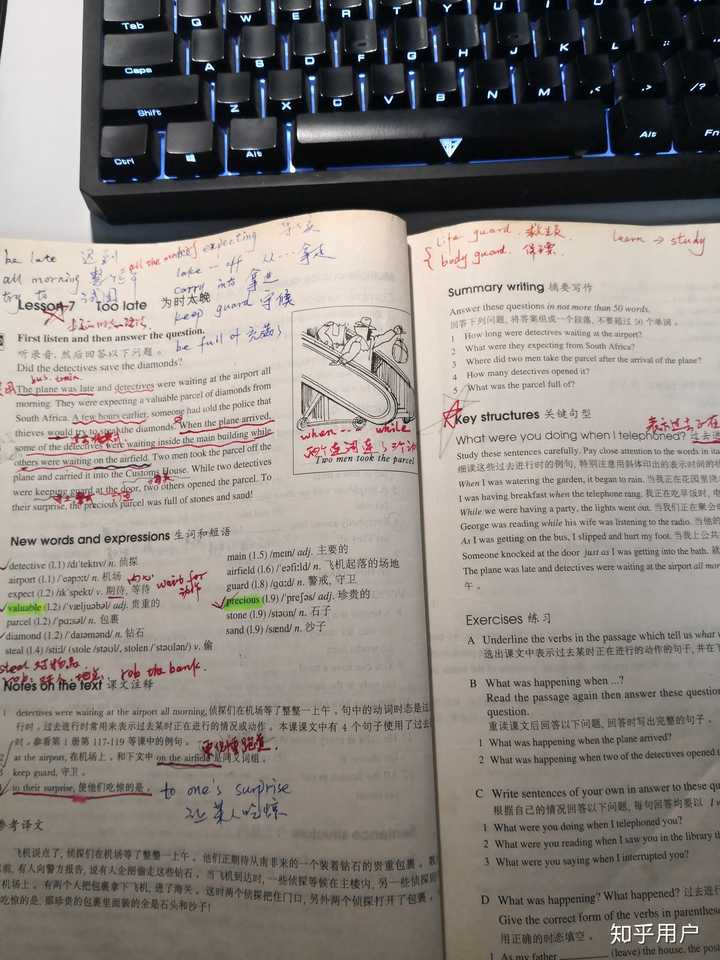 Tab Q W E R T Y U I O P
Caps A S D F G H J K L
Shift Z X C V B N M < > /?
Ctrl Alt Alt Fn
be late 迟到
all the morning expecting
all morning 整个上午
take … off 从…拿走
try to 试图
carry into 拿进
Lesson 7 Too late 为时太晚
keep guard 守候
First listen and then answer the question.
be full of 充满了
听录音, 然后回答以下问题。
Did the detectives save the diamonds?
bus. train
The plane was late and detectives were waiting at the airport all
morning. They were expecting a valuable parcel of diamonds from
South Africa. A few hours earlier, someone had told the police that
thieves would try to steal the diamonds. When the plane arrived,
some of the detectives were waiting inside the main building while
others were waiting on the airfield. Two men took the parcel off the
plane and carried it into the Customs House. While two detectives
were keeping guard at the door, two others opened the parcel. To
their surprise, the precious parcel was full of stones and sand!
when … while
Two men took the parcel
New words and expressions 生词和短语
detective (l.1) /dɪ'tektɪv/ n. 侦探
airport (l.1) /'eəpɔːt/ n. 机场
expect (l.2) /ɪk'spekt/ v. 期待, 等待
内心 wait for 动作
valuable (l.2) /'væljuəbəl/ adj. 贵重的
parcel (l.2) /'pɑːsəl/ n. 包裹
diamond (l.2) /'daɪəmənd/ n. 钻石
steal (l.4) /stiːl/ (stole /stəʊl/, stolen /'stəʊlən/) v. 偷
main (l.5) /meɪn/ adj. 主要的
airfield (l.6) /'eəfiːld/ n. 飞机起落的场地
guard (l.8) /gɑːd/ n. 警戒, 守卫
precious (l.9) /'preʃəs/ adj. 珍贵的
stone (l.9) /stəʊn/ n. 石子
sand (l.9) /sænd/ n. 沙子
steal 对物品
rob: 对人、地点, rob the bank.
Notes on the text 课文注释
1 detectives were waiting at the airport all morning, 侦探们在机场等了整整一上午。句中的动词时态是过
行时。过去进行时常用来表示过去某时正在进行的情况或动作。本课课文中有 4 个句子使用了过去
时。参看第 1 册第 117-119 等课中的例句。
2 at the airport, 在机场上。和下文中 on the airfield 是同义词组。
3 keep guard, 守卫。
4 to their surprise, 使他们吃惊的是。
to one's surprise
让某人吃惊
参考译文
飞机误点了, 侦探们在机场等了整整一上午。他们正期待从南非来的一个装着钻石的贵重包裹。数
前, 有人向警方报告, 说有人企图偷走这些钻石。当飞机到达时, 一些侦探等候在主楼内, 另一些侦探则
机场上。有两个人把包裹拿下飞机, 进了海关。这时两个侦探把住门口, 另外两个侦探打开了包裹。
吃惊的是, 那珍贵的包裹里面装的全是石头和沙子!
life guard. 救生员.
body guard. 保镖.
learn → study
Summary writing 摘要写作
Answer these questions in not more than 50 words.
回答下列问题, 将答案组成一个段落, 不要超过 50 个单词。
1 How long were detectives waiting at the airport?
2 What were they expecting from South Africa?
3 Where did two men take the parcel after the arrival of the plane?
4 How many detectives opened it?
5 What was the parcel full of?
Key structures 关键句型
What were you doing when I telephoned? 过去进
Study these sentences carefully. Pay close attention to the words in ita
细读这些过去进行时的例句, 特别注意用斜体印出的表示时间的
When I was watering the garden, it began to rain. 当我正在花园里浇
I was having breakfast when the telephone rang. 我正在吃早饭时,
While we were having a party, the lights went out. 当我们正在聚会
George was reading while his wife was listening to the radio. 当他
As I was getting on the bus, I slipped and hurt my foot. 当我上公共
Someone knocked at the door just as I was getting into the bath.
The plane was late and detectives were waiting at the airport all mor
午。
Exercises 练习
A Underline the verbs in the passage which tell us what w
选出课文中表示过去某时正在进行的动作的句子, 并在下
B What was happening when …?
Read the passage again then answer these question
question.
重读课文后回答以下问题, 回答时写出完整的句子。
1 What was happening when the plane arrived?
2 What was happening when two of the detectives opened t
C Write sentences of your own in answer to these qu
根据自己的情况回答以下问题, 每句回答均要以 I w
1 What were you doing when I telephoned you?
2 What were you reading when I saw you in the library th
3 What were you saying when I interrupted you?
D What was happening? What happened? 过去进行
Give the correct form of the verbs in parenthese
用正确的时态填空。
1 As my father (leave) the house, the post
知乎用户